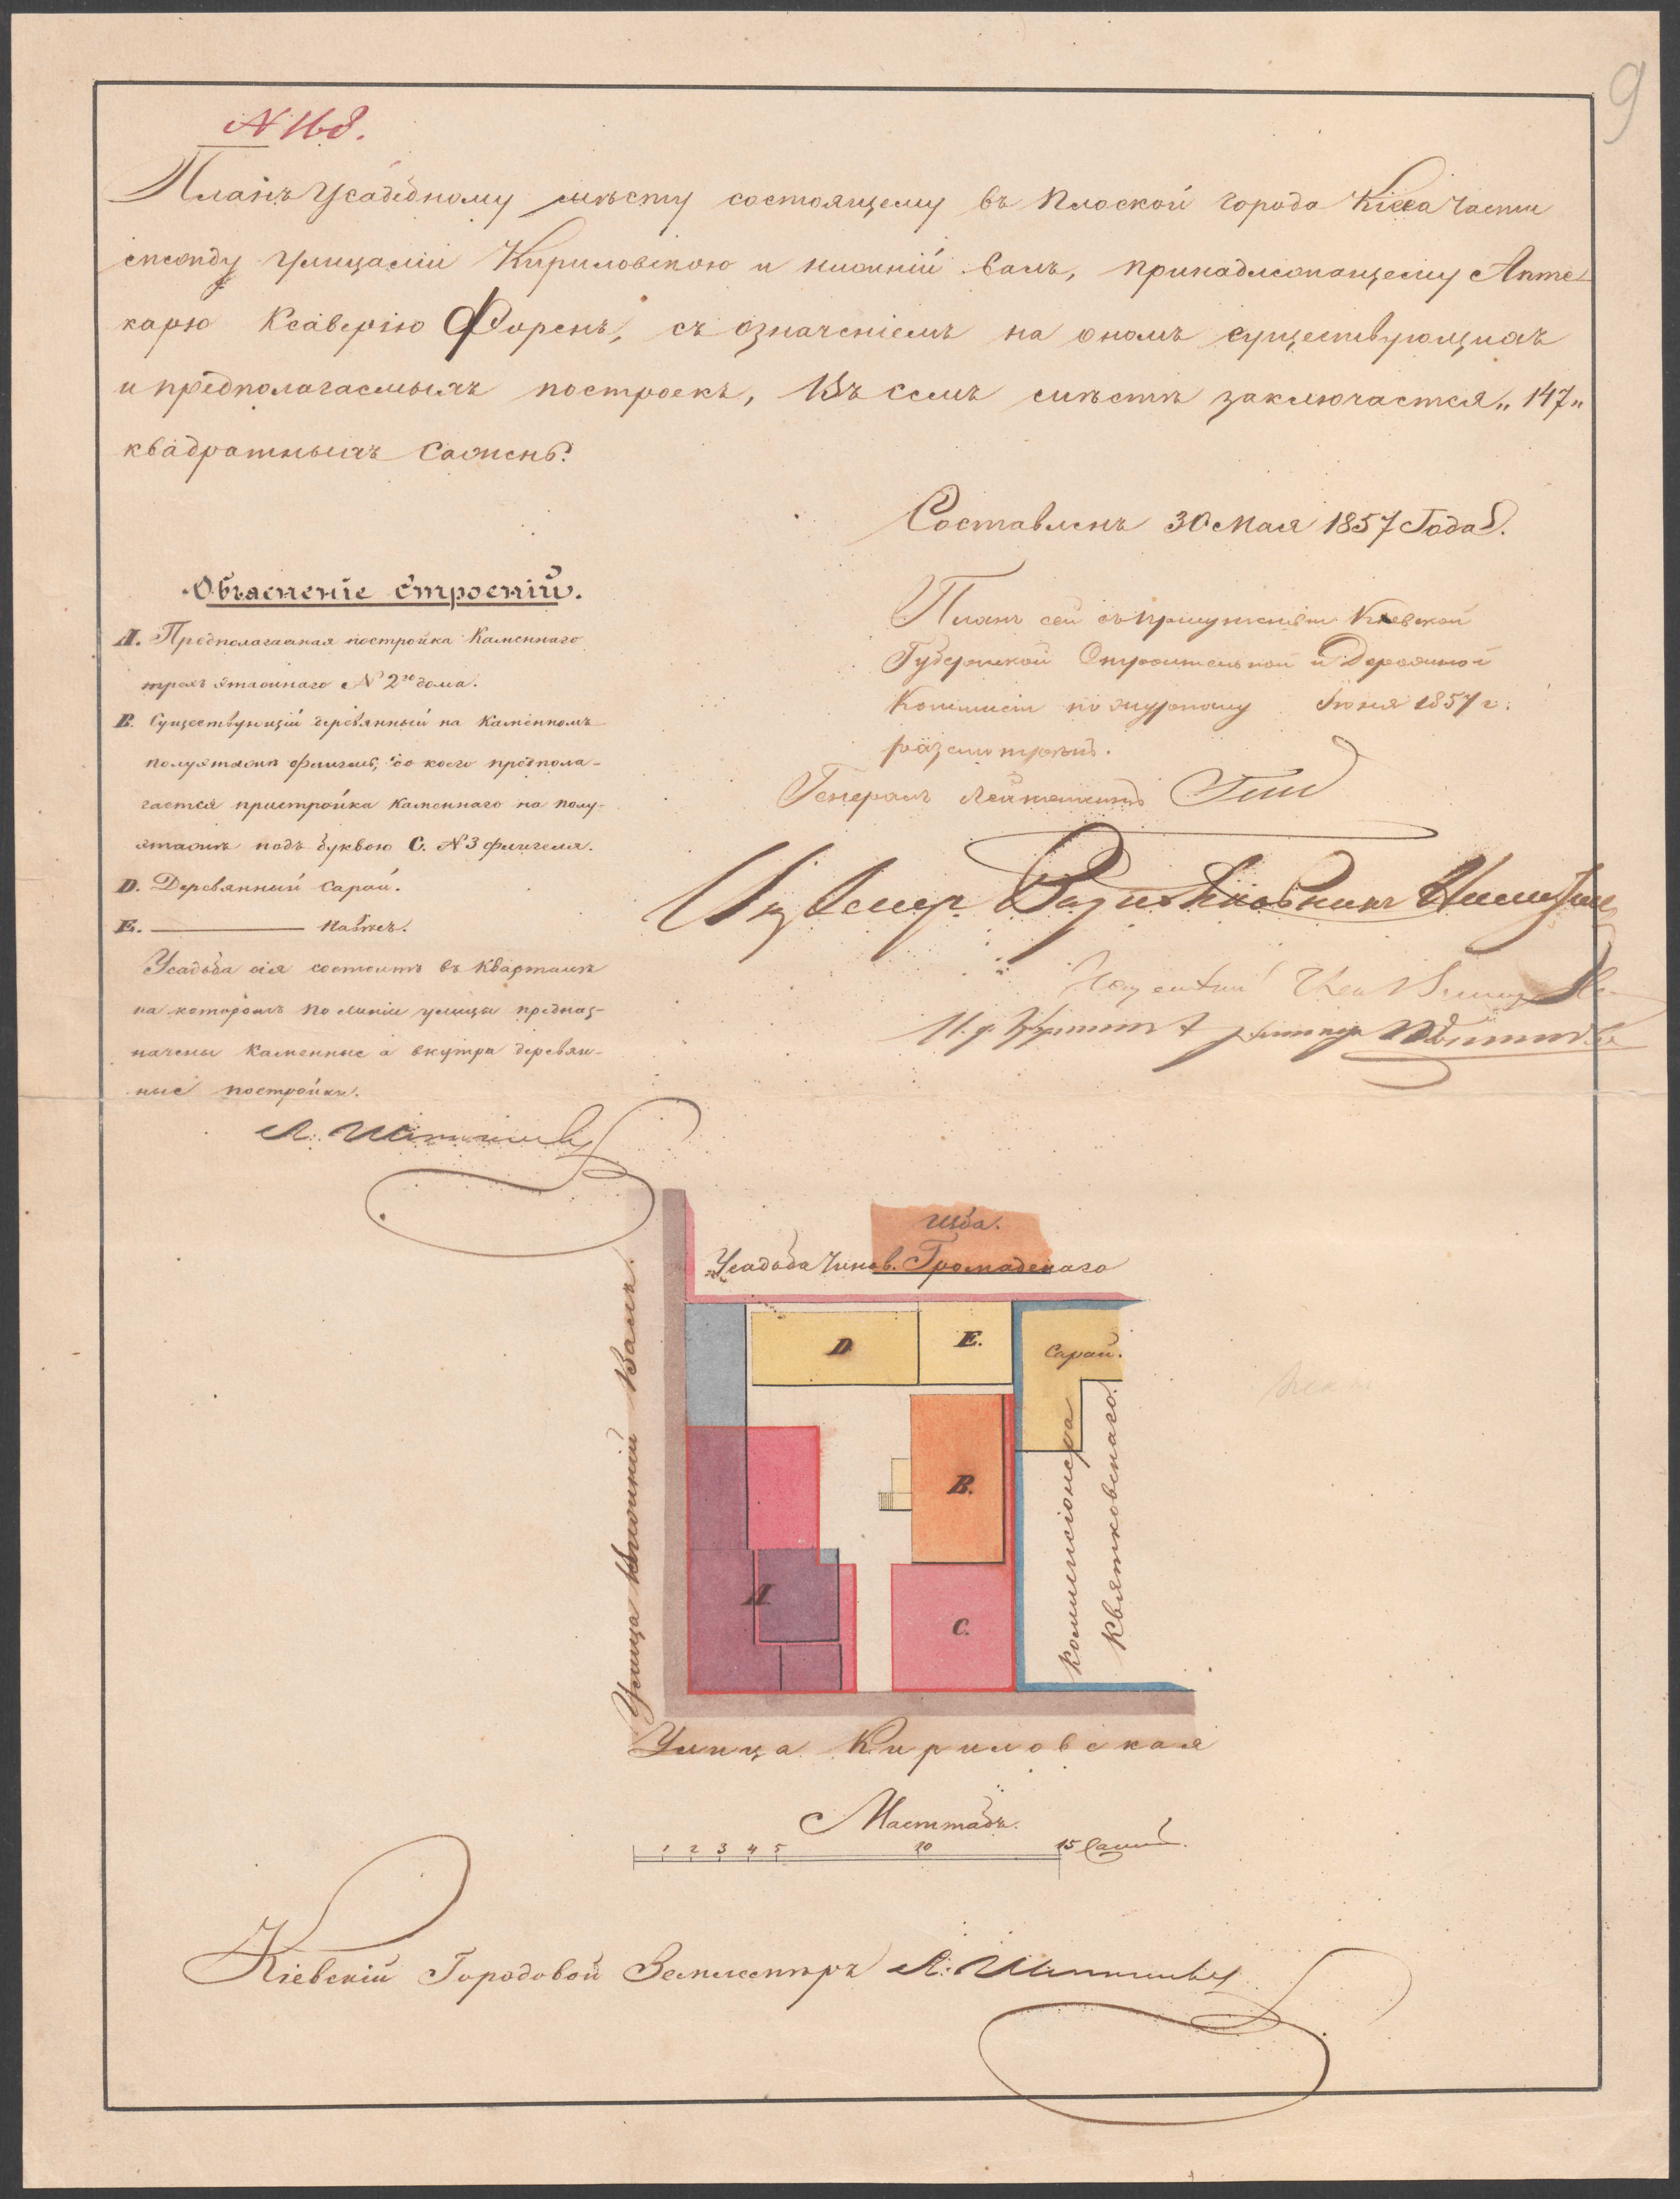 9
N 168.
Планъ усадебному мѣсту состоящему въ Плоской города Кіева части
между улицами Кириловскою и нижній валъ, принадлежащему Апте-
карю Ксаверію Форень, съ означеніемъ на ономъ существующихъ
и предполагаемыхъ построекъ, Въ семъ мѣстѣ заключается „147„
квадратныхъ сажень.
Составленъ 30 Мая 1857 Года.
Объясненіе строеній.
А. Предполагаемая постройка Каменнаго
трехъ этажнаго N 2го дома.
В. Существующій деревянный на каменномъ
полуэтажѣ флигель, до коего предпола-
гается пристройка каменнаго на полу-
этажѣ подъ буквою С. N 3 флигеля.
D. Деревянный сарай.
Е. навѣсъ.
Усадьба сія состоитъ въ кварталѣ
на которомъ по линіи улицы предназ-
начены каменные а внутри деревян-
ные постройки.
Планъ сей въ присутствіи Кіевской
Губернской Строительной и Дорожной
Коммисіи по журналу Іюня 1857 г.
разсмотрѣнъ.
Генералъ Лейтенантъ
Инженер Подполковникъ
Изба.
Усадьба Чинов. Громадскаго
D
Е.
Сарай.
В.
А
С.
коммисіонера
Квятковскаго.
Улица Нижній Валъ.
Улица Кириловская
Масштабъ.
1 2 3 4 5 10 15 Сажень.
Кіевскій Городовой Землемѣръ